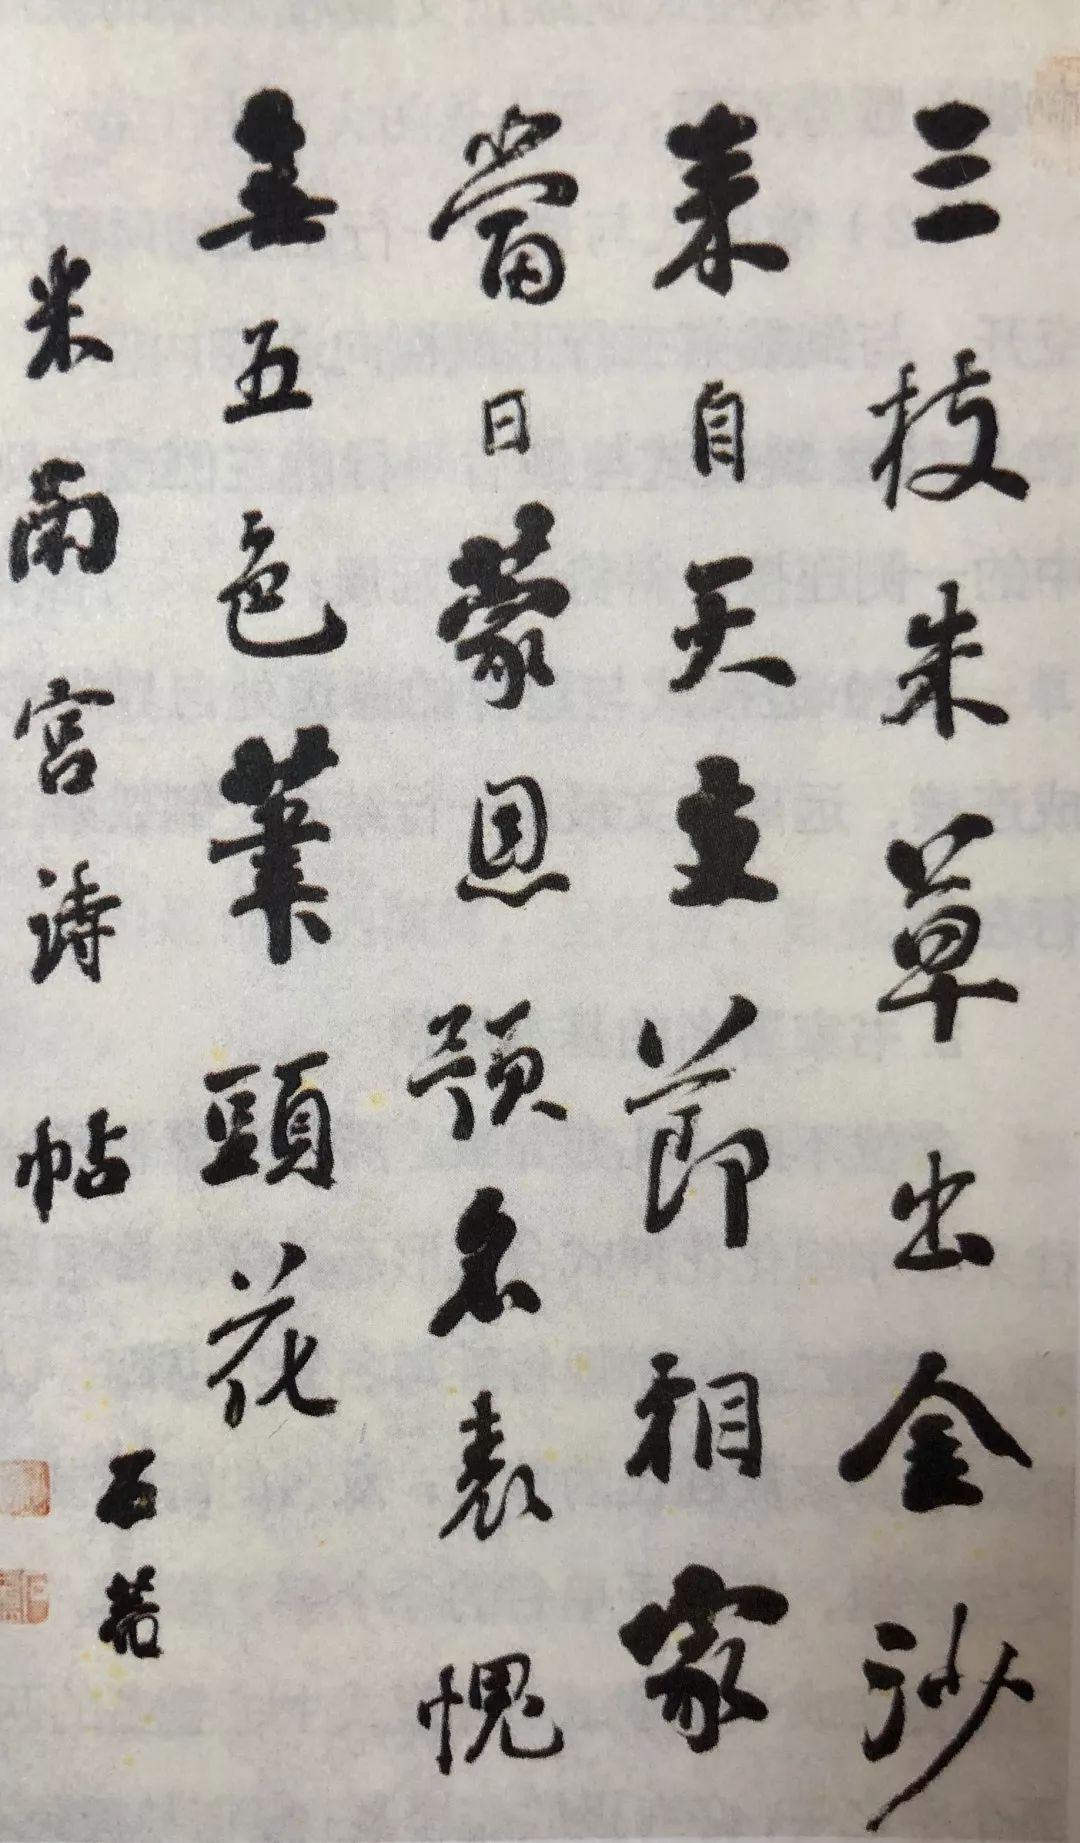 三枝朱草出金沙
来自天立節相家
當日蒙恩預名表愧
無五色筆頭花
米南宮詩帖
石菴